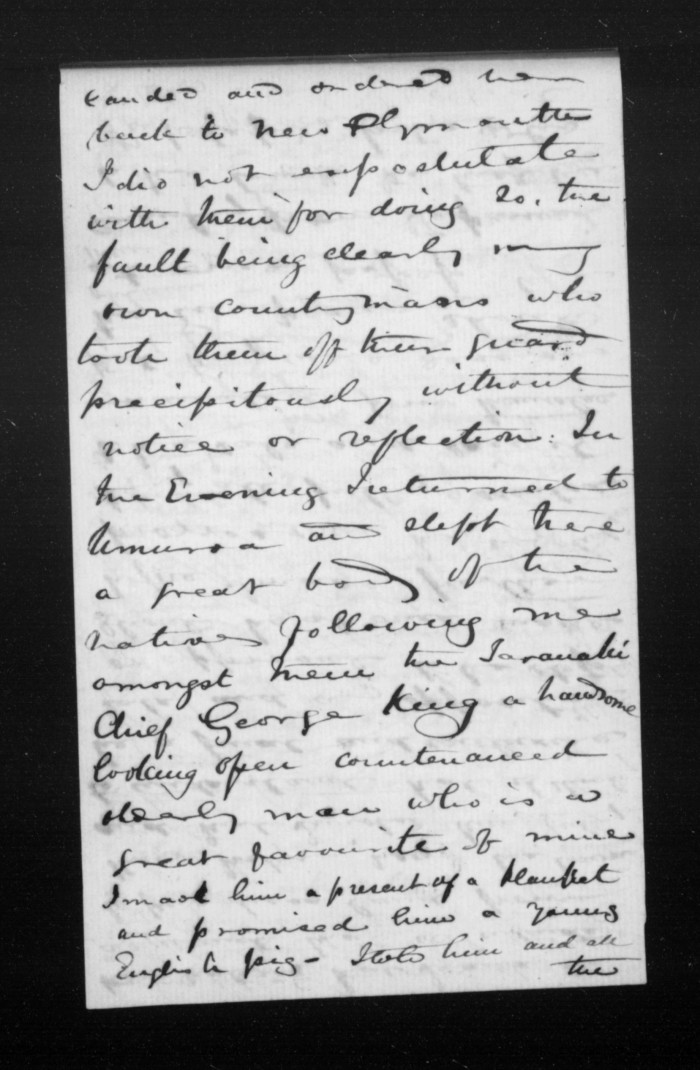 landed and ordered them
back to New Plymouth
I did not expostulate
with them for doing so, the
fault being clearly my
own countrymans who
took them off their guard
precipitously without
notice or reflection: In
the Evening I returned to
Umuroa and slept here
a great body of the
natives following me
amongst them the Taranaki
Chief George King a handsome
looking open countenanced
elderly man who is a
great favourite of mine
I made him a present of a blanket
and promised him a young
English pig - I told him and all
the